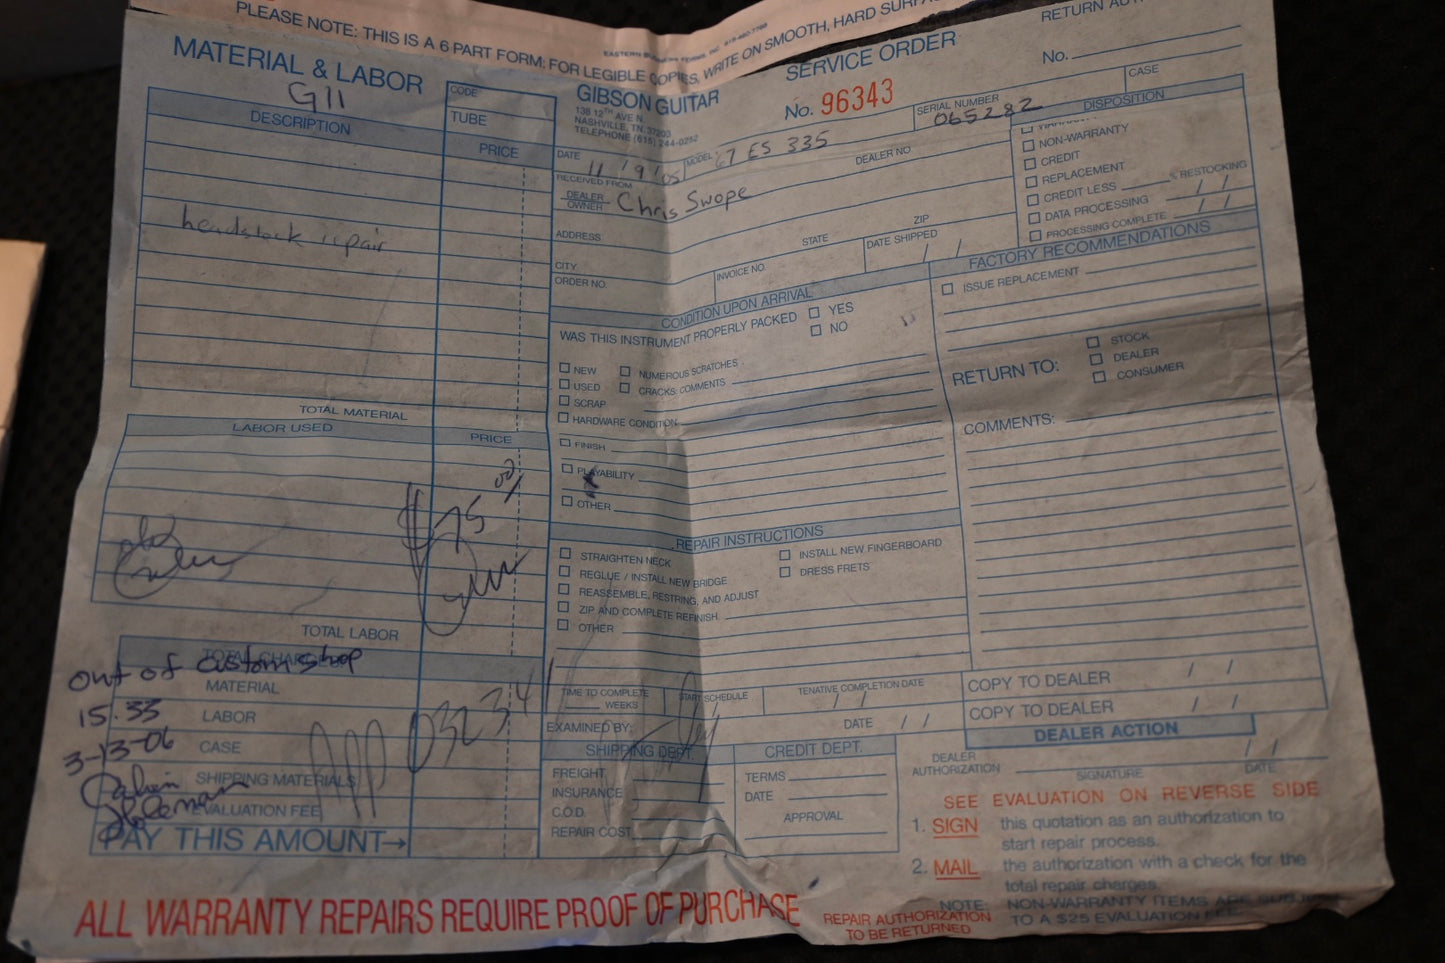 PLEASE NOTE: THIS IS A 6 PART FORM: FOR LEGIBLE COPIES, WRITE ON SMOOTH, HARD
EASTERN BUSINESS FORMS, INC.
MATERIAL & LABOR
G11
DESCRIPTION
CODE
TUBE
PRICE
headstock repair
TOTAL MATERIAL
LABOR USED
PRICE
$75.00
TOTAL LABOR
TOTAL CHARGES
out of custom shop
MATERIAL
15.33
LABOR
3-13-06
CASE
SHIPPING MATERIALS
EVALUATION FEE
PAY THIS AMOUNT→
GIBSON GUITAR
138 12TH AVE N.
NASHVILLE, TN. 37203
TELEPHONE (615) 244-0252
SERVICE ORDER
No. 96343
RETURN
No.
CASE
SERIAL NUMBER
065282
DATE
11/9/05
MODEL
'67 ES 335
RECEIVED FROM
DEALER
OWNER
Chris Swope
DEALER NO.
ADDRESS
CITY
STATE
ZIP
ORDER NO.
INVOICE NO.
DATE SHIPPED
/ /
DISPOSITION
WARRANTY
NON-WARRANTY
CREDIT
REPLACEMENT
CREDIT LESS % RESTOCKING
DATA PROCESSING / /
PROCESSING COMPLETE / /
CONDITION UPON ARRIVAL
WAS THIS INSTRUMENT PROPERLY PACKED YES
NO
NEW NUMEROUS SCRATCHES
USED CRACKS: COMMENTS
SCRAP
HARDWARE CONDITION
FINISH
PLAYABILITY
OTHER
FACTORY RECOMMENDATIONS
ISSUE REPLACEMENT
RETURN TO:
STOCK
DEALER
CONSUMER
COMMENTS:
REPAIR INSTRUCTIONS
STRAIGHTEN NECK INSTALL NEW FINGERBOARD
REGLUE / INSTALL NEW BRIDGE DRESS FRETS
REASSEMBLE, RESTRING, AND ADJUST
ZIP AND COMPLETE REFINISH
OTHER
TIME TO COMPLETE
WEEKS
START SCHEDULE
/ /
TENATIVE COMPLETION DATE
/ /
EXAMINED BY: DATE / /
COPY TO DEALER / /
COPY TO DEALER / /
SHIPPING DEPT.
FREIGHT
INSURANCE
C.O.D.
REPAIR COST
CREDIT DEPT.
TERMS
DATE
APPROVAL
DEALER ACTION
DEALER
AUTHORIZATION
SIGNATURE
DATE
/ /
SEE EVALUATION ON REVERSE SIDE
1. SIGN this quotation as an authorization to
start repair process.
2. MAIL the authorization with a check for the
total repair charges.
NOTE: NON-WARRANTY ITEMS ARE
TO A $25 EVALUATION FEE
ALL WARRANTY REPAIRS REQUIRE PROOF OF PURCHASE
REPAIR AUTHORIZATION
TO BE RETURNED